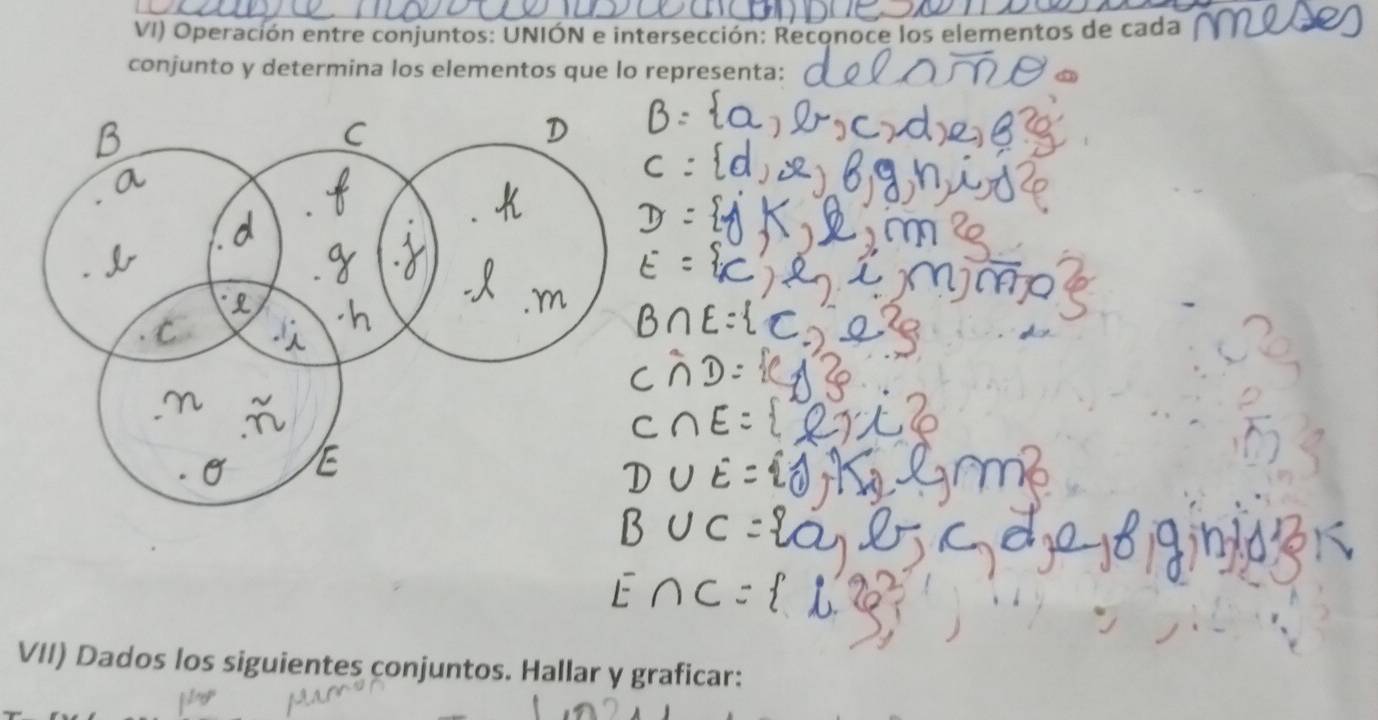 VI) Operación entre conjuntos: UNIÓN e intersección: Reconoce los elementos de cada meses
conjunto y determina los elementos que lo representa: del año.
B C D
a
b
d
f
g
h
j
k
l
m
e
c
i
n
ñ
o
E
B = {a, b, c, d, e, f, g}
C = {d, e, f, g, h, i, j}
D = {j, k, l, m}
E = {c, e, i, n, ñ, o}
B ∩ E = { c, e}
C ∩ D = { j}
C ∩ E = { e, i}
D ∪ E = {j, k, l, m}
B ∪ C = {a, b, c, d, e, f, g, h, i, j} K
E ∩ C = { i }
VII) Dados los siguientes conjuntos. Hallar y graficar: